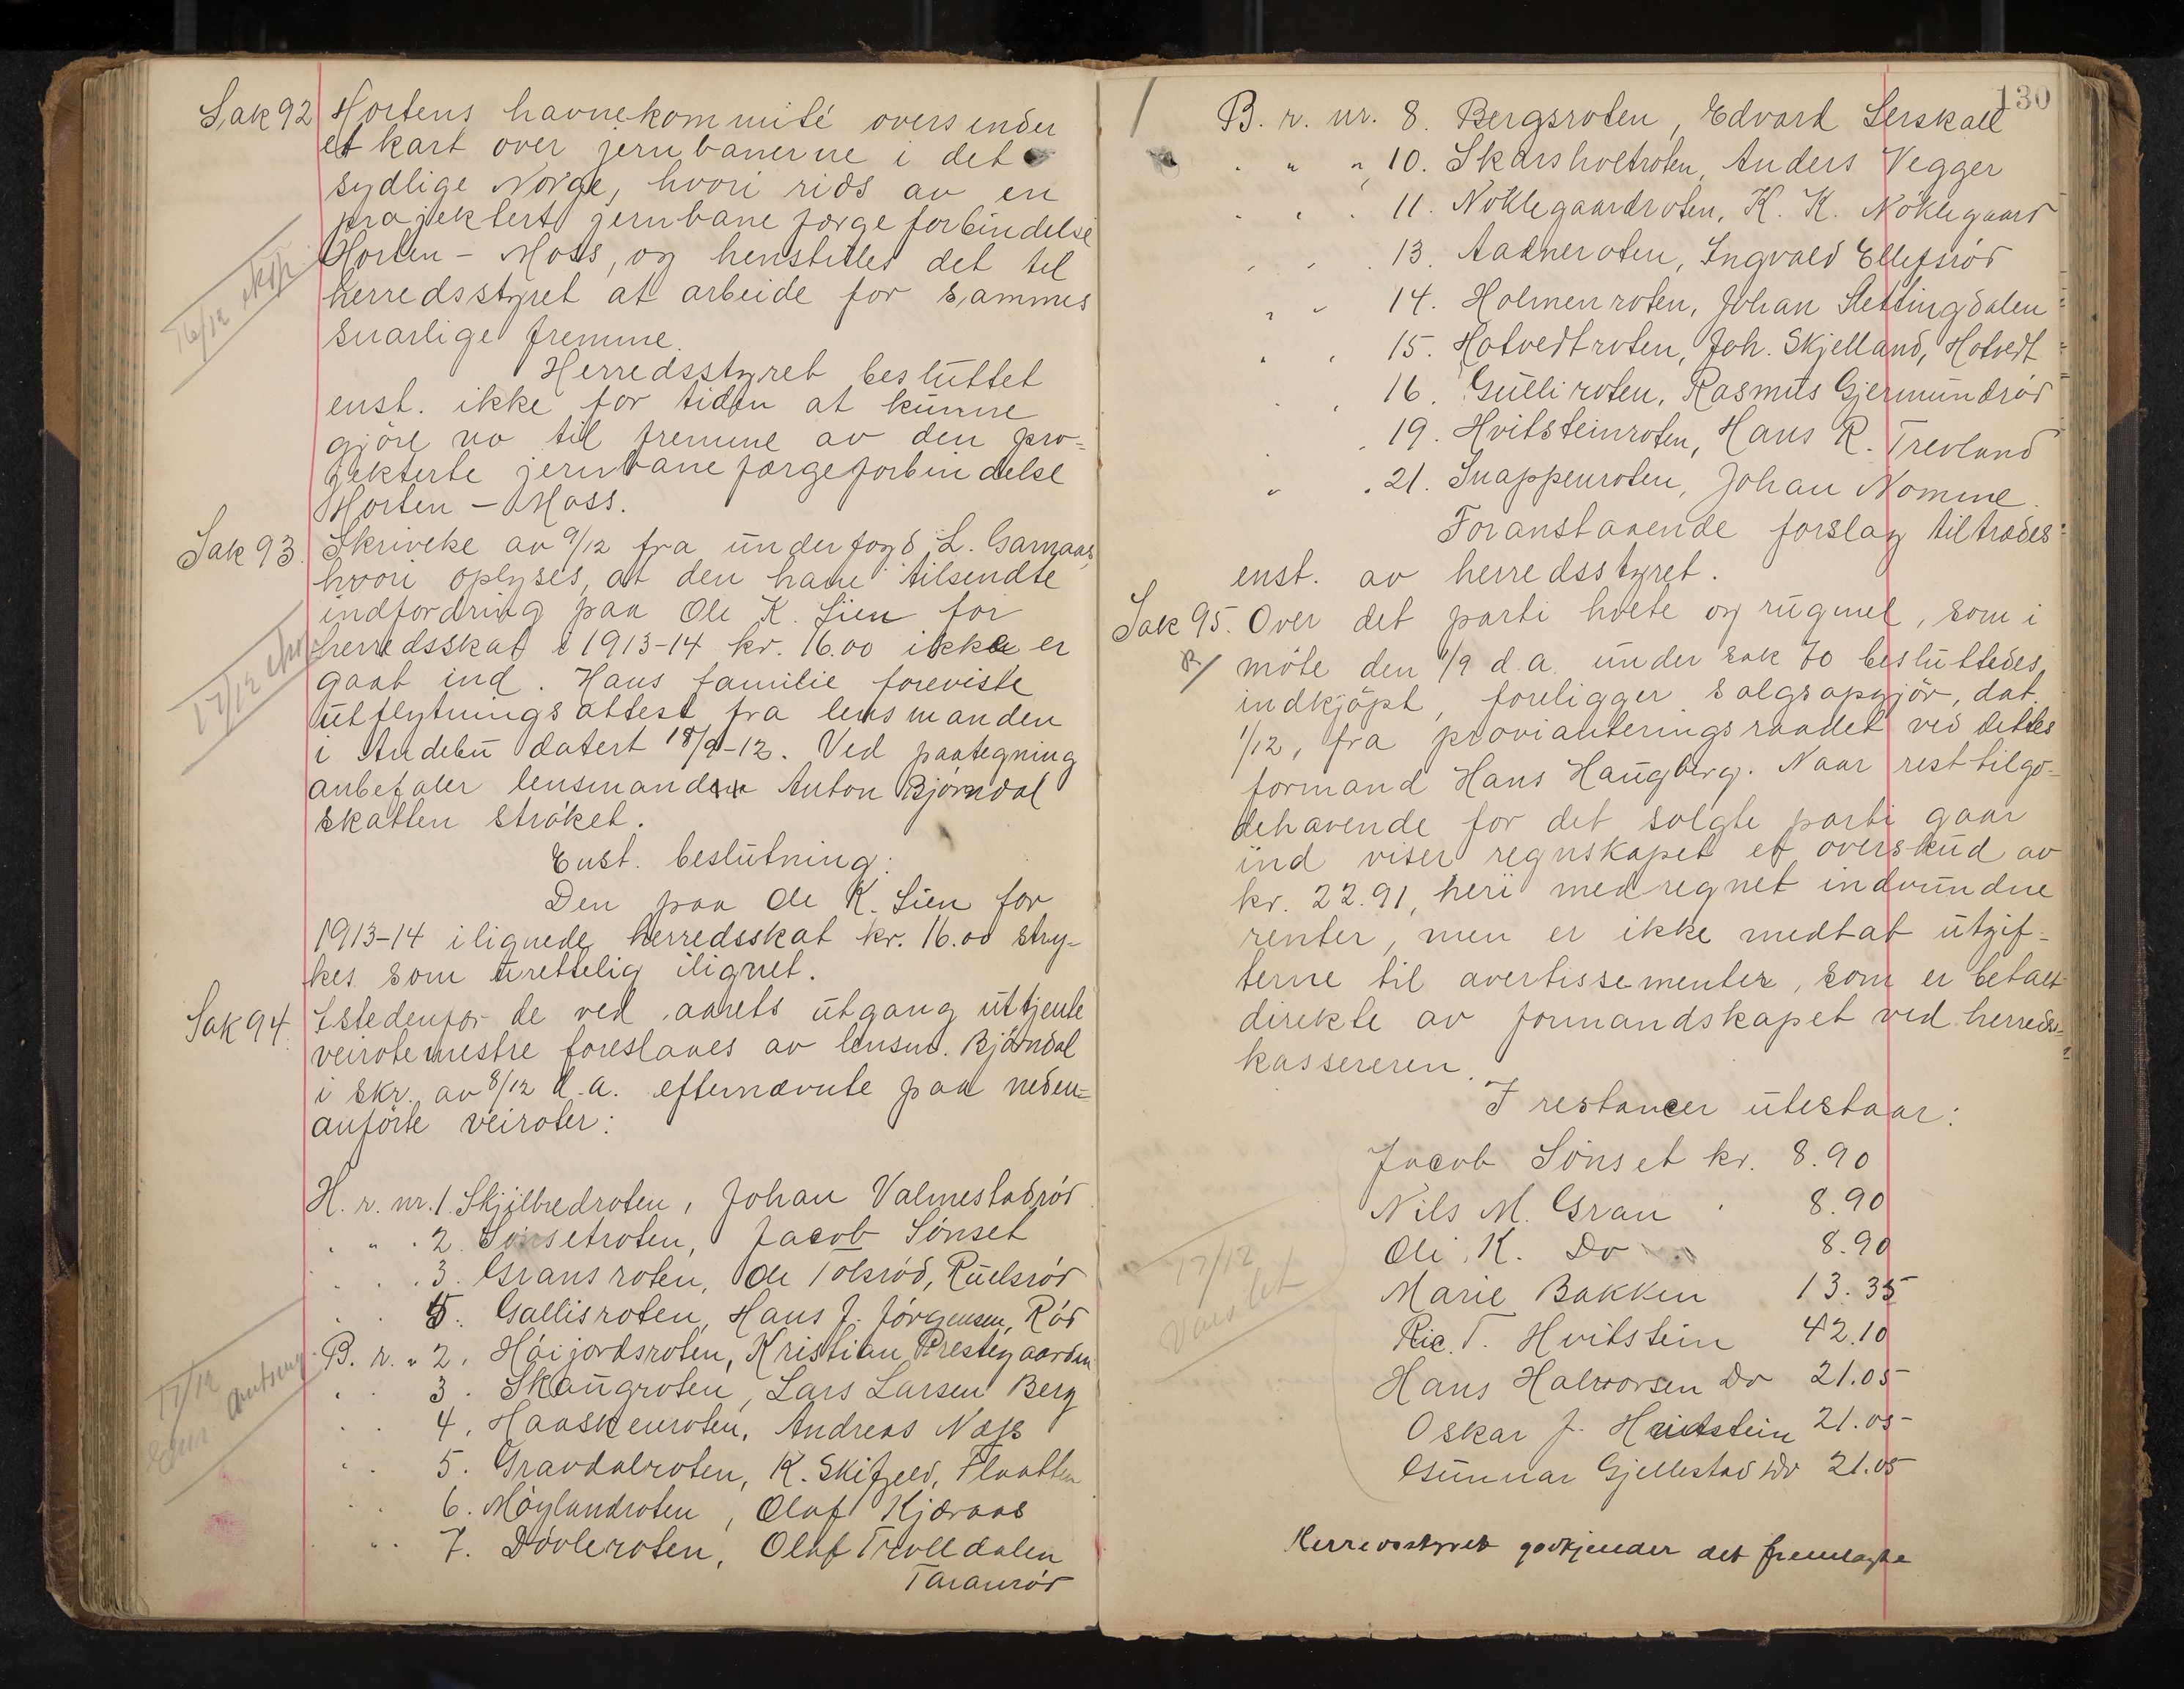 Sak 92 Hortens havnekommité oversender
et kart over jernbanerne i det
sydlige Norge, hvori rids av en
projektert jernbane færgeforbindelse
Horten - Moss, og henstilles det til
herredsstyret at arbeide for sammes
snarlige fremme.
16/12 eksp.
Herredsstyret besluttet
enst. ikke for tiden at kunne
gjöre no til fremme av den pro-
jekterte jernbane færgeforbindelse
Horten - Moss.
Sak 93. Skrivelse av 9/12 fra underfogd L. Garnaas,
hvori oplyses, at den ham tilsendte
indfordring paa Ole K. Lien for
herredsskat i 1913-14 kr. 16.00 ikke er
gaat ind. Hans familie foreviste
utflytningsattest fra lensmanden
i Andebu datert 18/9-12. Ved paategning
anbefaler lensmanden Anton Bjørndal
skatten strøket.
17/12
Enst. beslutning:
Den paa Ole K. Lien for
1913-14 ilignede herredsskat kr. 16.00 stry-
kes som urettelig ilignet.
Sak 94. Istedenfor de ved aarets utgang uttjente
veirotemestre foreslaaes av lensm. Bjørndal
i skr. av 8/12 d.a. efternævnte paa neden-
anförte veiroter:
H. r. nr. 1. Skjilbredroten, Johan Valmestadrød
" " 2. Sønsetroten, Jacob Sønset
" " 3. Gransroten, Ole Tolsrød, Ruelsrød
" " 5. Gallisroten, Hans J. Jørgensen, Rød
B. r. " 2. Høijordsroten, Kristian Prestegaarden
" " 3. Skaugroten, Lars Larsen Berg
" " 4. Haaskenroten, Andreas Næss
" " 5. Gravdalroten, K. Skifjeld, Flaatten
" " 6. Møylandroten, Olaf Kjæraas
" " 7. Døvleroten, Olaf Trolldalen
Taranrød
17/12
130
B. r. nr. 8. Bergsroten, Edvard Serskall
" " " 10. Skarsholtroten, Anders Vegger
" " " 11. Nøklegaardroten, K. K. Nøklegaard
" " " 13. Aadneroten, Ingvald Ellefsrød
" " 14. Holmenroten, Johan Slettingdalen
" " 15. Hotvedtroten, Joh. Skjelland, Hotvedt
" " 16. Gulliroten, Rasmus Gjermundrød
" " 19. Hvitsteinroten, Hans R. Trevland
" " 21. Snappenroten, Johan Nomme.
Foranstaaende forslag tiltrædes
enst. av herredsstyret.
Sak 95. Over det parti hvete og rugmel, som i
möte den 1/9 d.a. under sak 70 besluttedes
indkjöpt, foreligger salgsopgjör, dat.
1/12, fra provianteringsraadet ved dettes
formand Hans Haugberg. Naar resttilgo-
dehavende for det solgte parti gaar
ind viser regnskapet et overskud av
kr. 22.91, heri medregnet indvundne
renter, men er ikke medtat utgif-
terne til avertissementer, som er betalt
direkte av formandskapet ved herreds-
kassereren.
I restancer utestaar:
Jacob Sönset kr. 8.90
Nils M. Gran " 8.90
Ole K. Do 8.90
Marie Bakken 13.35
Ric. T. Hvitstein 42.10
Hans Halvorsen Do 21.05
Oskar J. Hvitstein 21.05
Gunnar Gjellestad Do 21.05
17/12
Varslet
Herredsstyret godkjender det fremlagte